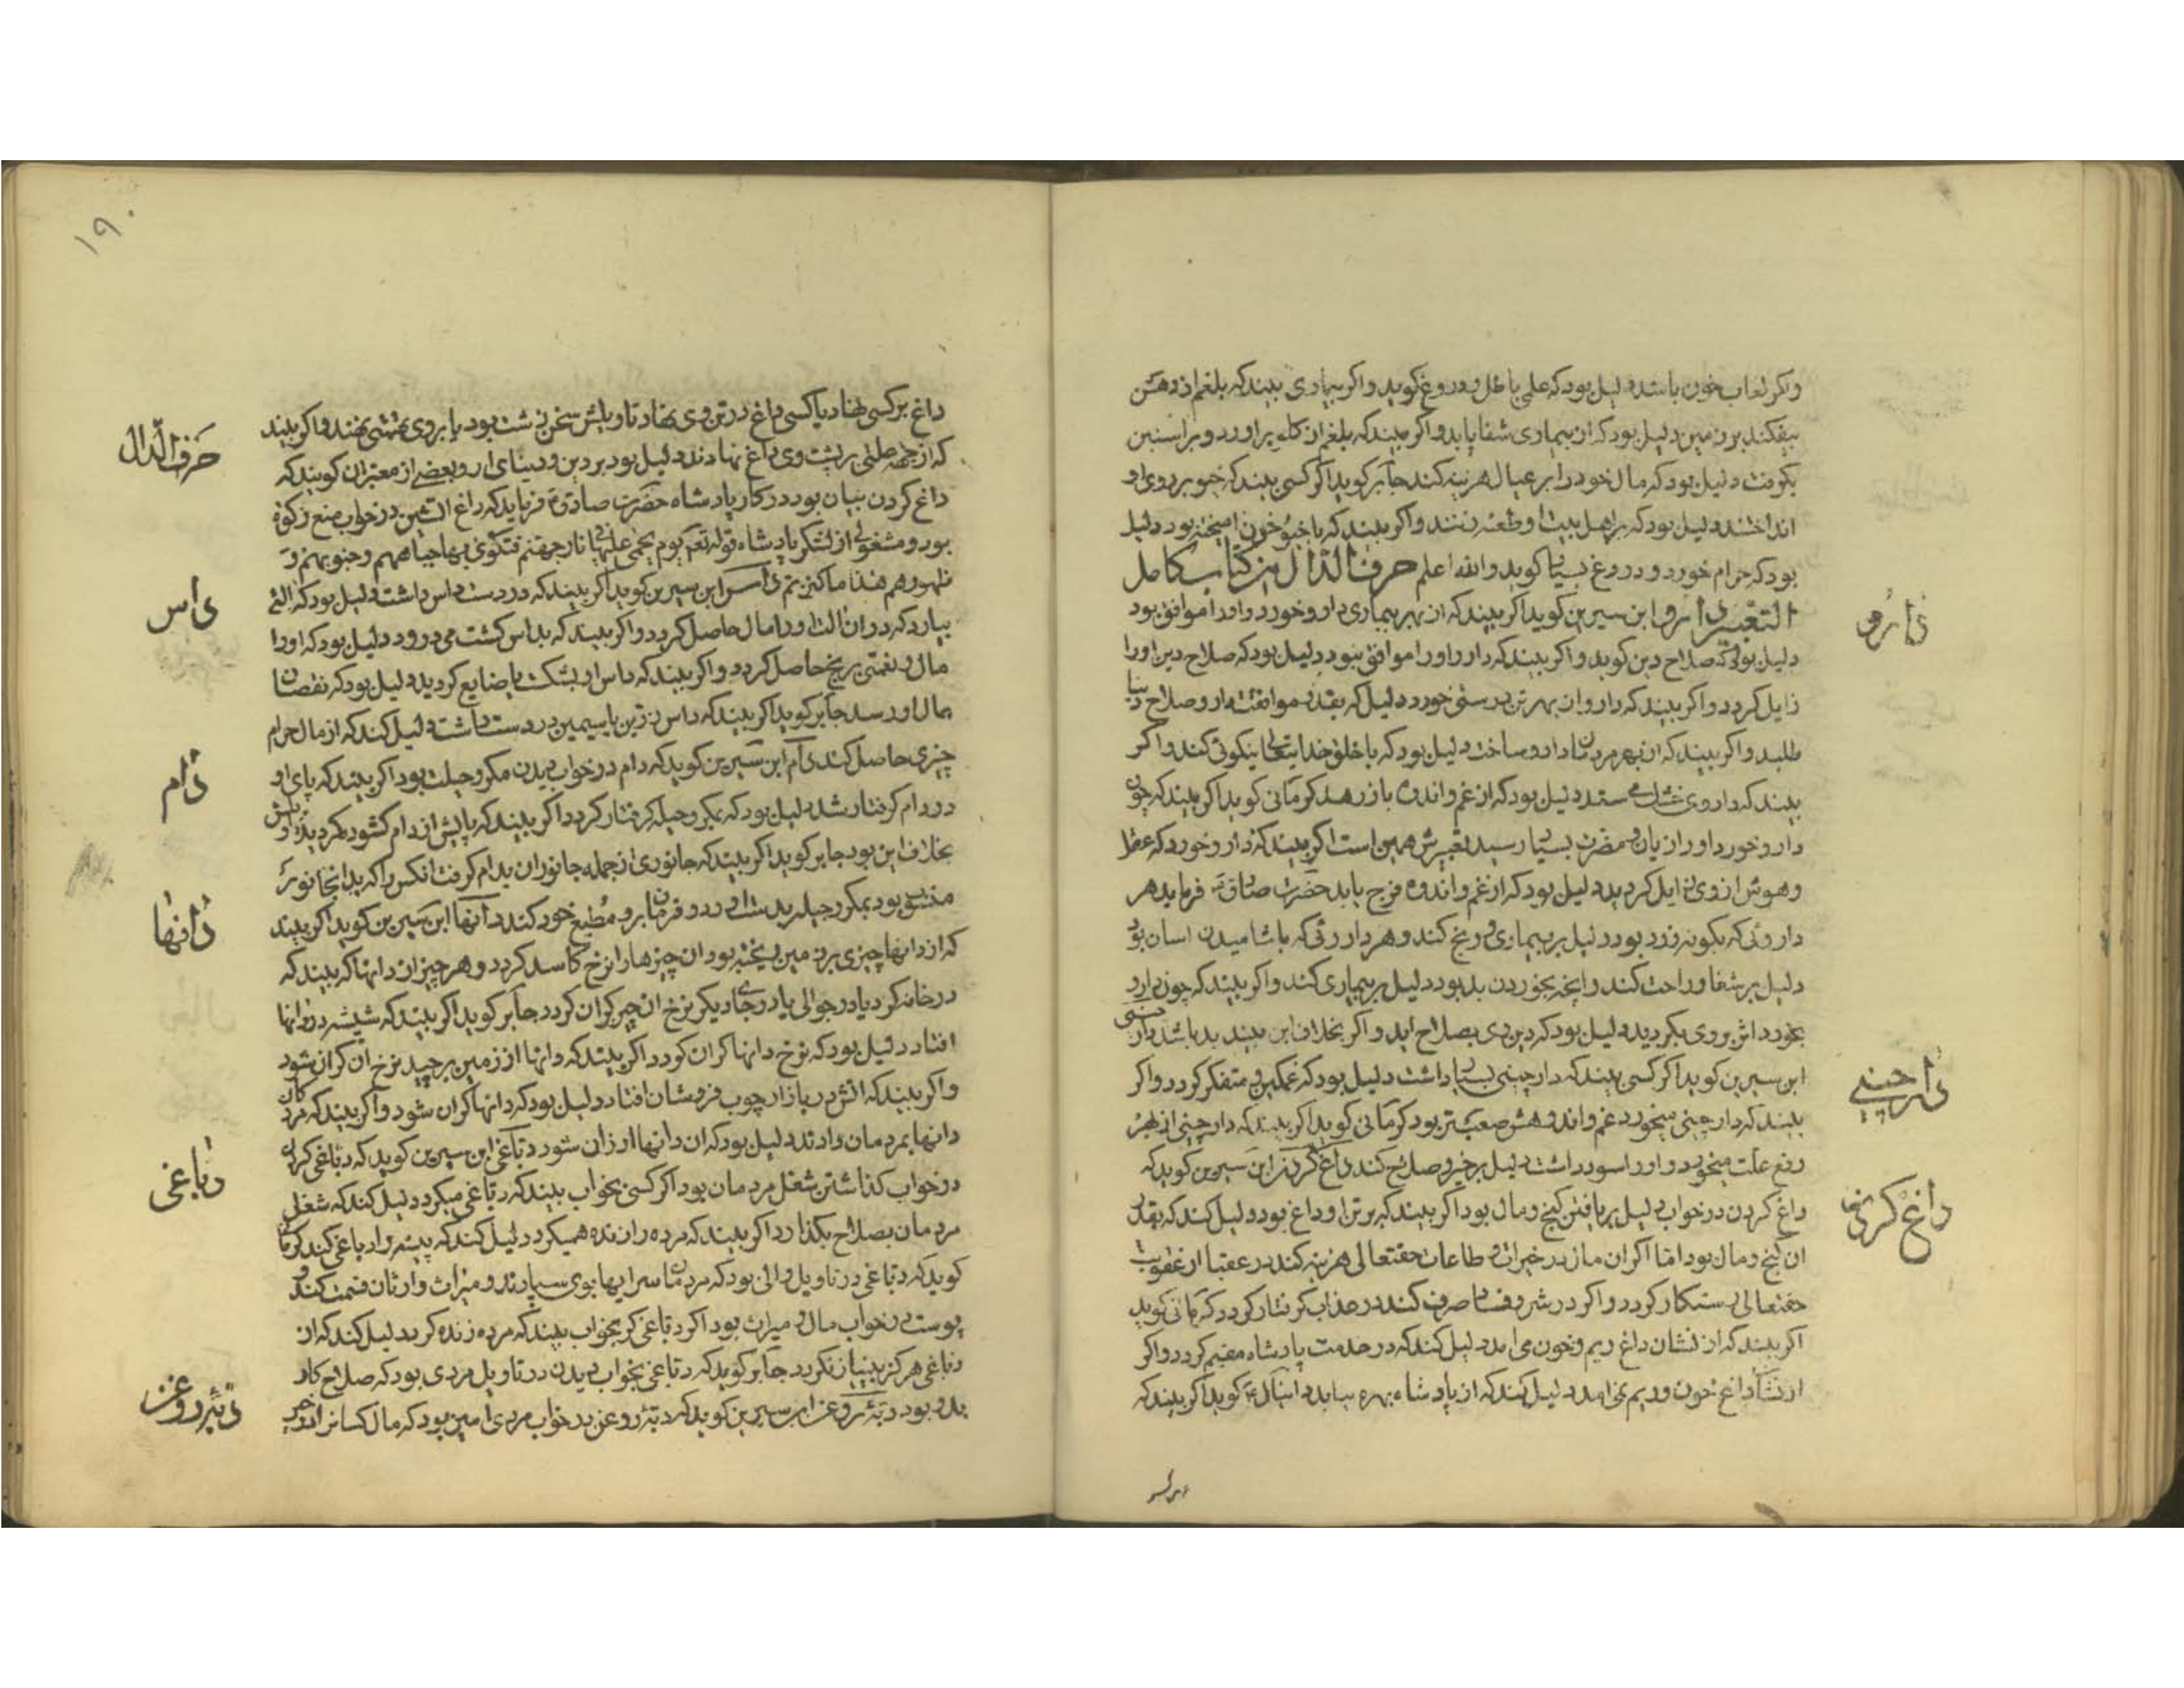 واکر لعاب خون باشد دلیل بود که علمی باطل و دروغ کوید و اکر بیماری بیند که بلغم از دهن
بیفکند بر زمین دلیل بود که از بیماری شفا یابد و اکر بیند که بلغم از کلو براورد و بر استین
کرفت دلیل بود که مال خود را بر عیال هزینه کند جابر کوید اکر کسی بیند که خیو بر روی او
انداختند دلیل بود که بر اهل بیت او طعنه زنند و اکر بیند که با خیو خون امیخته بود دلیل
بود که حرام خورد و دروغ بسیار کوید والله اعلم حرف الدال من کتاب کامل
التعبیر دارو ابن سیرین کوید اکر بیند که از بهر بیماری دارو خورد و او را موافق بود
دارو
دلیل بود که صلاح دین کوید و اکر بیند که دارو او را موافق نبود دلیل بود که صلاح دین او را
زایل کردد و اکر بیند که دارو از بهر تن درستی خورد دلیل که بقدر موافقت دارو صلاح دنیا
طلبد و اکر بیند که از بهر مردمان دارو ساخت دلیل بود که با خلق خدایتعالی نیکوئی کند و اکر
بیند که داروی میستد دلیل بود که از غم و اندوه باز رهد کرمانی کوید اکر بیند که چون
دارو خورد او را زیان و مضرت بسیار رسید تعبیرش همین است اکر بیند که دارو خورد که عقل
و هوش از وی زایل کردید دلیل بود که از غم و اندوه فرج یابد حضرت صادق فرماید هر
داروئی که بکونه زرد بود دلیل بر بیماری و رنج کند و هر داروئی که باشامیدن اسان بود
دلیل بر شفا و راحت کند و انچه بخوردن بد بود دلیل بر بیماری کند و اکر بیند که چون دارو
بخورد اثر بر وی بکردید دلیل بود که دین وی بصلاح اید و اکر بخلاف این بیند بد باشد دارچینی
ابن سیرین کوید اکر کسی بیند که دارچینی بسیار داشت دلیل بود که غمکین و متفکر کردد و اکر
دارچینی
بیند که دارچینی میخورد غم و اندوهش صعبتر بود کرمانی کوید اکر بیند که دارچینی از بهر
دفع علت میخورد و او را سود داشت دلیل بر خیر و صلاح کند داغ کردن ابن سیرین کوید که
داغ کردن در خواب دلیل بر یافتن کنج و مال بود اکر بیند که بر تن او داغ بود دلیل کند که بقدر
داغ کردن
ان کنج و مال بود اما اکر ان مال در خیرات و طاعات حقتعالی هزینه کند در عقبا از عقوبت
حقتعالی رستکار کردد و اکر در شر و فساد صرف کند در عذاب کرفتار کردد کرمانی کوید
اکر بیند که از نشان داغ ریم و خون می امد دلیل کند که در خدمت پادشاه مقیم کردد و اکر
از نشان داغ خون و ریم نمی امد دلیل کند که از پادشاه بهره بیابد دانیال کوید اکر بیند که
۱۹۰
داغ بر کسی نهاد یا کسی داغ در تن وی نهاد تاویلش سخن زشت بود یا بر وی نهند و اکر بیند
حرف الدال
که از جهة علتی بر پشت وی داغ نهادند دلیل بود بر دین و دنیای او و بعضی از معبران کویند که
داغ کردن بیان بود در کار پادشاه حضرت صادق فرماید که داغ اتشین در خواب منع زکوة
بود و مشغولی از لشکر پادشاه قوله تعم یوم یحمی علیها فی نار جهنم فتکوی بها جباههم و جنوبهم و
ظهورهم هذا ما کنزتم داس ابن سیرین کوید اکر بیند که در دست داس داشت دلیل بود که التی
داس
بیارد که در ان الت او را مال حاصل کردد و اکر بیند که بداس کشت می درود دلیل بود که او را
مال و نعمتی برنج حاصل کردد و اکر بیند که داس او بشکست یا ضایع کردید دلیل بود که نقصان
مال او رسد جابر کوید اکر بیند که داس زرین یا سیمین در دست داشت دلیل کند که از مال حرام
چیزی حاصل کند دام ابن سیرین کوید که دام در خواب دیدن مکر و حیلت بود اکر بیند که پای او
دام
در دام کرفتار شد دلیل بود که بمکر و حیله کرفتار کردد اکر بیند که پایش از دام کشوده کردید تاویلش
بخلاف این بود جابر کوید اکر بیند که جانوری از جمله جانوران بدام کرفت انکس را که بدانجانور
منسوب بود بمکر و حیله بدست اورد و فرمان بر و مطیع خود کند دانها ابن سیرین کوید اکر بیند
دانها
که از دانها چیزی بر زمین ریخته بود ان چیزها را نرخ کاسد کردد و هر چیز از دانها که بیند که
در خانه کرد یا در جوالی یا در جای دیکر نرخ ان چیز کران کردد جابر کوید اکر بیند که شپشه در دانها
افتاد دلیل بود که نرخ دانها کران کردد اکر بیند که دانها از زمین برچید نرخ ان کران شود
و اکر بیند که اتش در بازار چوب فروشان افتاد دلیل بود که دانها کران شود و اکر بیند که مردکان
دانها بمردمان دادند دلیل بود که ان دانها ارزان شود دباغی ابن سیرین کوید که دباغی کردن
دباغی
در خواب کذاشتن شغل مردمان بود اکر کسی بخواب بیند که دباغی میکرد دلیل کند که شغل
مردمان بصلاح بکذارد اکر بیند که مرده را زنده همیکرد دلیل کند که پیشه او دباغی کند کرمانی
کوید که دباغی در تاویل والی بود که مردمان سرایها بوی سپارند و میراث وارثان قسمت کند و
پوست در خواب مال و میراث بود اکر دباغی کر بخواب بیند که مرده زنده کرد دلیل کند که از
دباغی هرکز بینیاز نکردد جابر کوید که دباغی بخواب دیدن در تاویل مردی بود که صلاح کار
بدو بود دبه روغن ابن سیرین کوید که دبه روغن در خواب مردی امین بود که مال کسان
دبه روغن